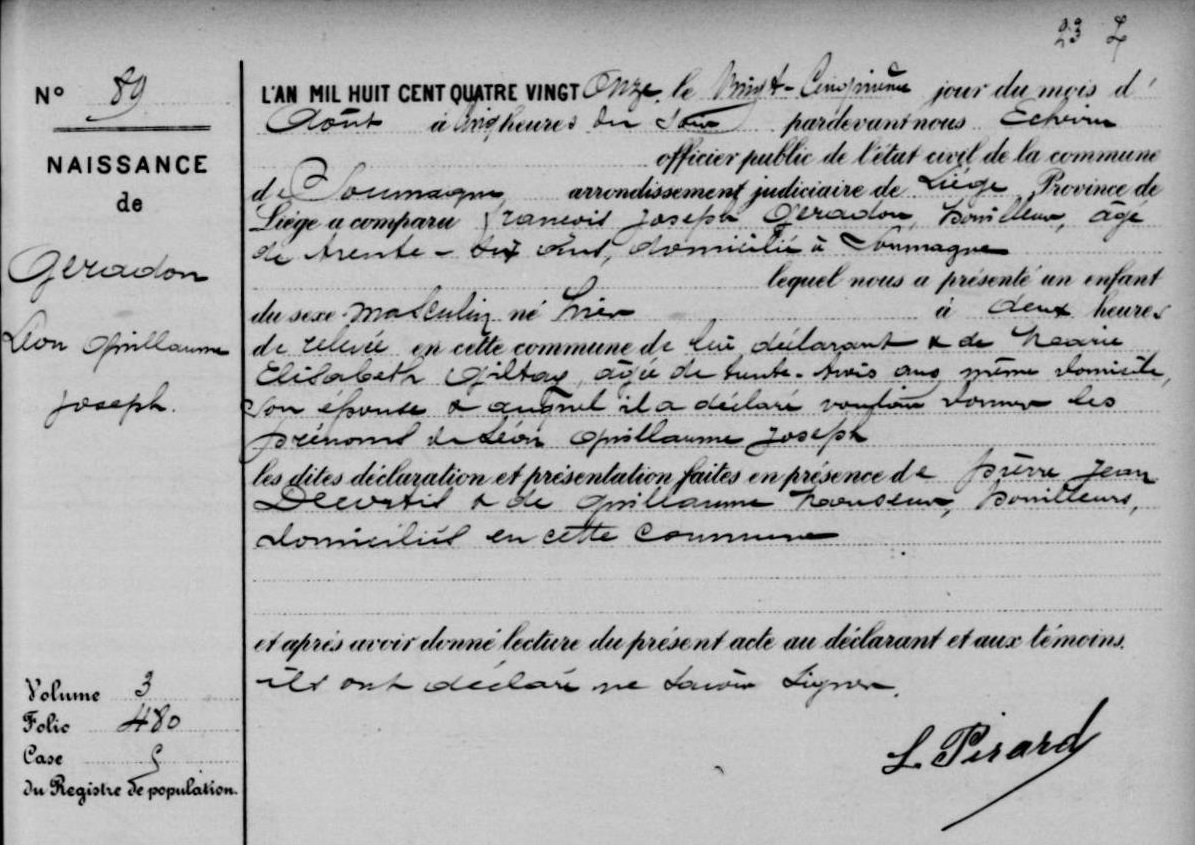 23
N° 89
NAISSANCE
de
Geradon
Léon Guillaume
Joseph.
L'AN MIL HUIT CENT QUATRE VINGT Onze, le Vingt-Cinquième jour du mois d'
Août à cinq heures du Soir pardevant nous Echevin
officier public de l'état civil de la commune
de Soumagne arrondissement judiciaire de Liége Province de
Liége a comparu François Joseph Geradon, houilleur, âgé
de trente-six ans, domicilié à Soumagne
lequel nous a présenté un enfant
du sexe masculin né hier à deux heures
de relevée en cette commune de lui déclarant & de Marie
Elisabeth Giltay, âgée de trente-trois ans, même domicile,
son épouse & auquel il a déclaré vouloir donner les
prénoms de Léon Guillaume Joseph
les dites déclaration et présentation faites en présence de Pierre Jean
& de Guillaume houilleurs,
domiciliés en cette commune
et après avoir donné lecture du présent acte au déclarant et aux témoins.
ils ont déclaré ne savoir signer.
L. Pirard
Volume 3
Folio 480
Case
du Registre de population.